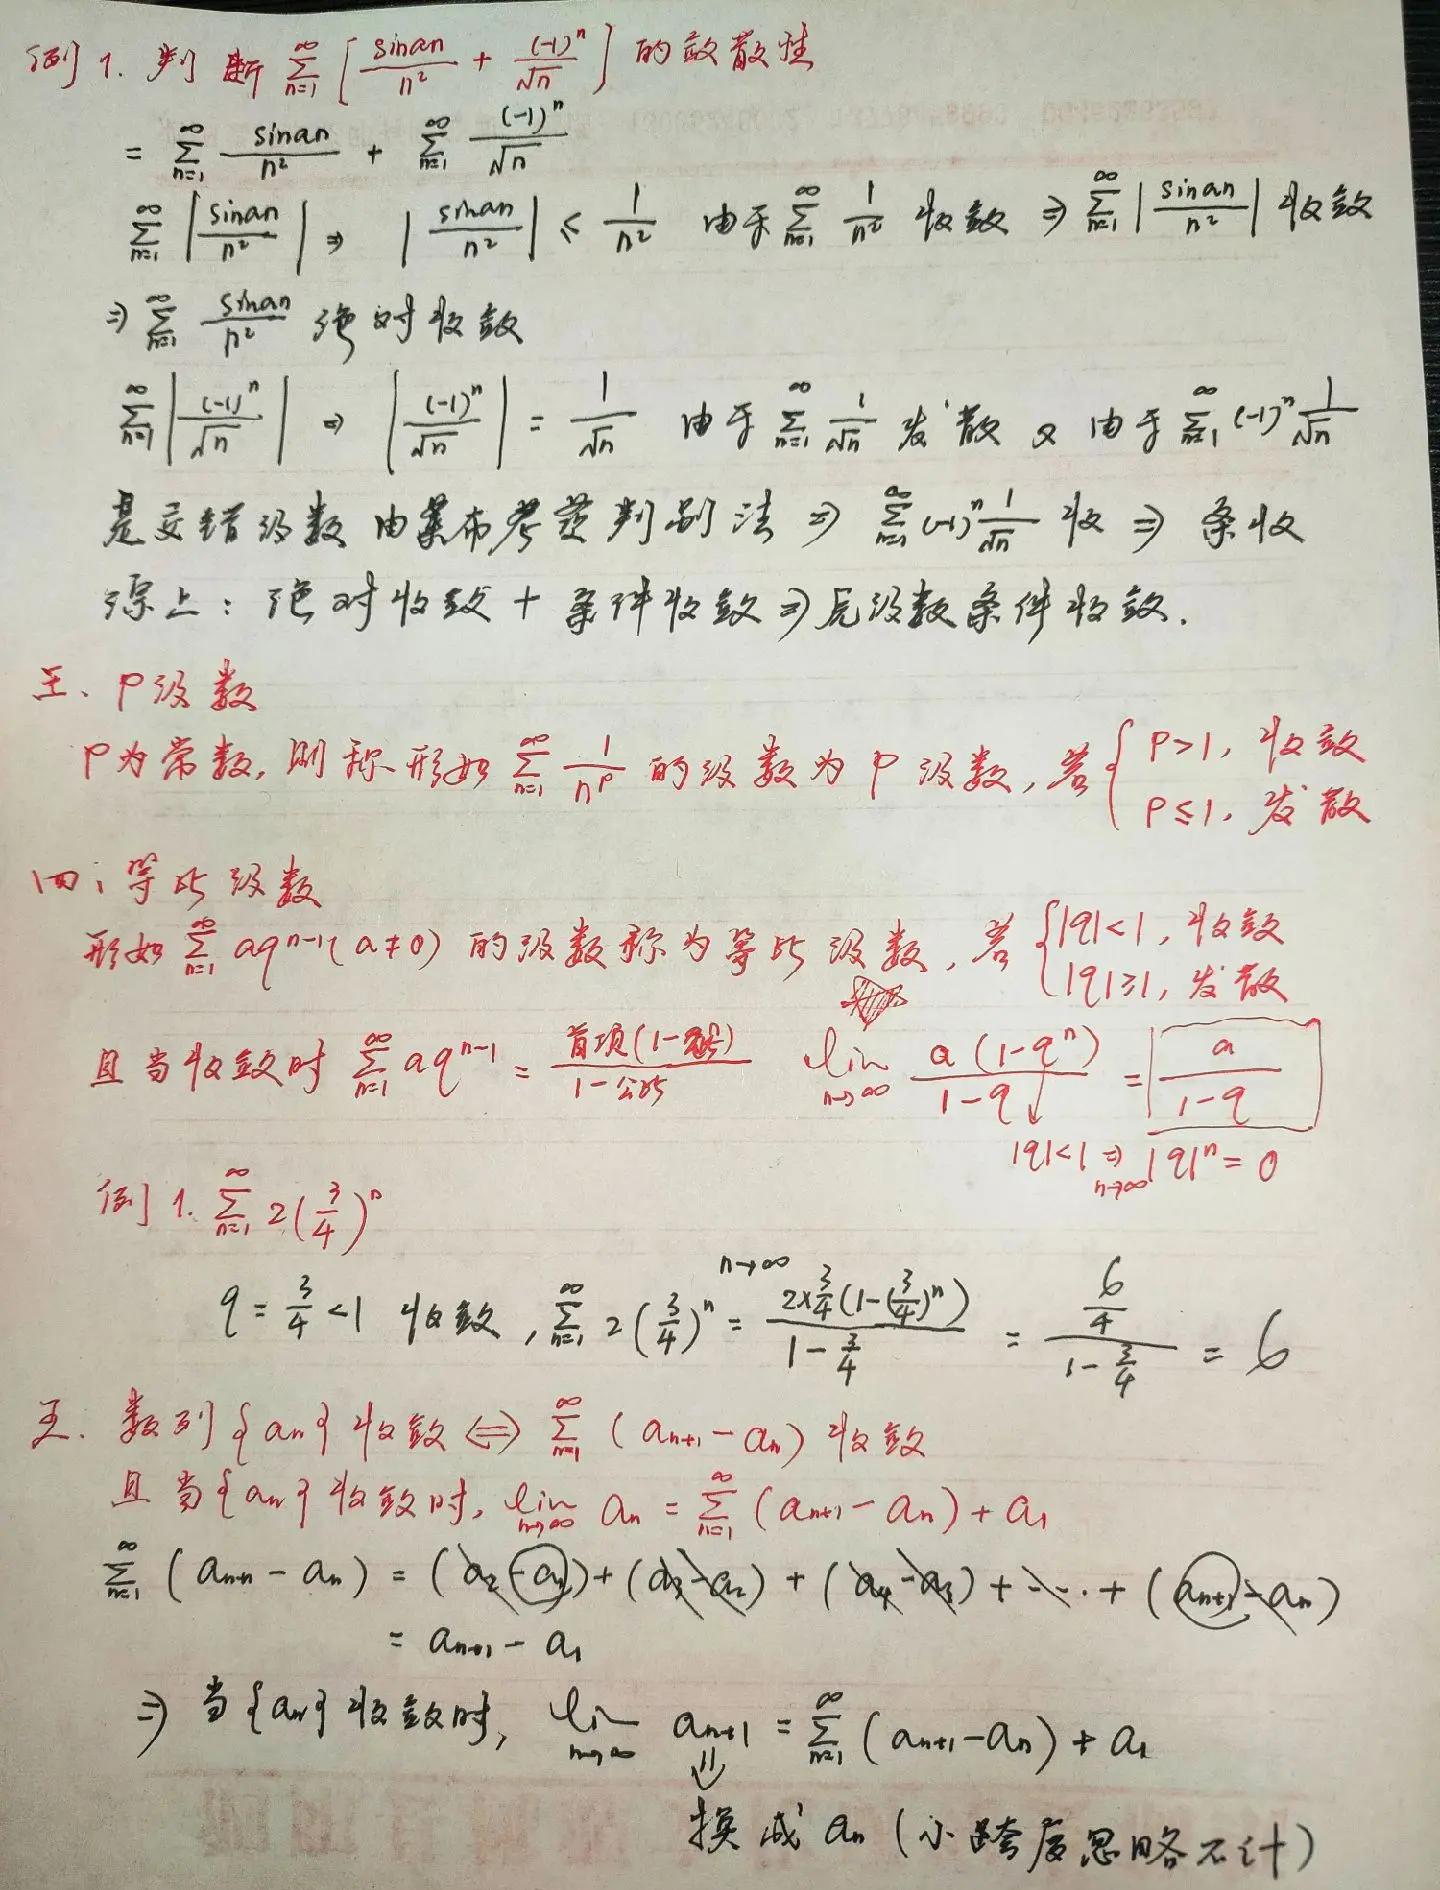 例1. 判断 ∑_{n=1}^{∞} [ sinan/n² + (-1)ⁿ/√n ] 的敛散性
= ∑_{n=1}^{∞} sinan/n² + ∑_{n=1}^{∞} (-1)ⁿ/√n
∑_{n=1}^{∞} |sinan/n²| ⇒ |sinan/n²| ≤ 1/n² 由于 ∑_{n=1}^{∞} 1/n² 收敛 ⇒ ∑_{n=1}^{∞} |sinan/n²| 收敛
⇒ ∑_{n=1}^{∞} sinan/n² 绝对收敛
∑_{n=1}^{∞} |(-1)ⁿ/√n| ⇒ |(-1)ⁿ/√n| = 1/√n 由于 ∑_{n=1}^{∞} 1/√n 发散 又由于 ∑_{n=1}^{∞} (-1)ⁿ 1/√n
是交错级数 由莱布尼茨判别法 ⇒ ∑_{n=1}^{∞} (-1)ⁿ 1/√n 收 ⇒ 条收
综上: 绝对收敛 + 条件收敛 ⇒ 原级数条件收敛.
三、P级数
P为常数, 则称形如 ∑_{n=1}^{∞} 1/n^p 的级数为P级数, 若 { P>1, 收敛
P≤1, 发散
四、等比级数
形如 ∑_{n=1}^{∞} aq^{n-1} (a≠0) 的级数称为等比级数, 若 { |q|<1, 收敛
|q|≥1, 发散
且当收敛时 ∑_{n=1}^{∞} aq^{n-1} = 首项(1- )/(1-公比) lim_{n→∞} a(1-qⁿ)/(1-q) = a/(1-q)
|q|<1 ⇒_{n→∞} |q|ⁿ = 0
例1. ∑_{n=1}^{∞} 2(3/4)ⁿ
n→∞
q = 3/4 < 1 收敛, ∑_{n=1}^{∞} 2(3/4)ⁿ = 2×3/4(1-(3/4)ⁿ)/(1-3/4) = (6/4)/(1-3/4) = 6
五. 数列{an}收敛 ⇔ ∑_{n=1}^{∞} (a_{n+1} - a_n) 收敛
且当{an}收敛时, lim_{n→∞} a_n = ∑_{n=1}^{∞} (a_{n+1} - a_n) + a_1
∑_{n=1}^{∞} (a_{n+1} - a_n) = (a_2 - a_1) + (a_3 - a_2) + (a_4 - a_3) + ····· + (a_{n+1} - a_n)
= a_{n+1} - a_1
⇒ 当{an}收敛时, lim_{n→∞} a_{n+1} = ∑_{n=1}^{∞} (a_{n+1} - a_n) + a_1
换成 a_n (小跨度忽略不计)